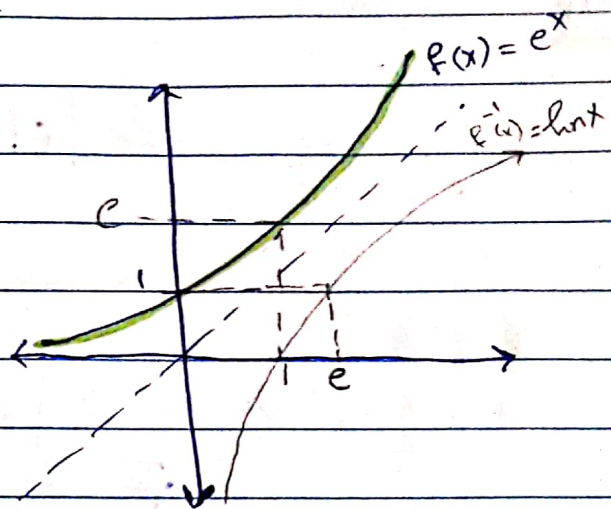 f(x) = e^x
f^-1(x) = lnx
e
1
1
e